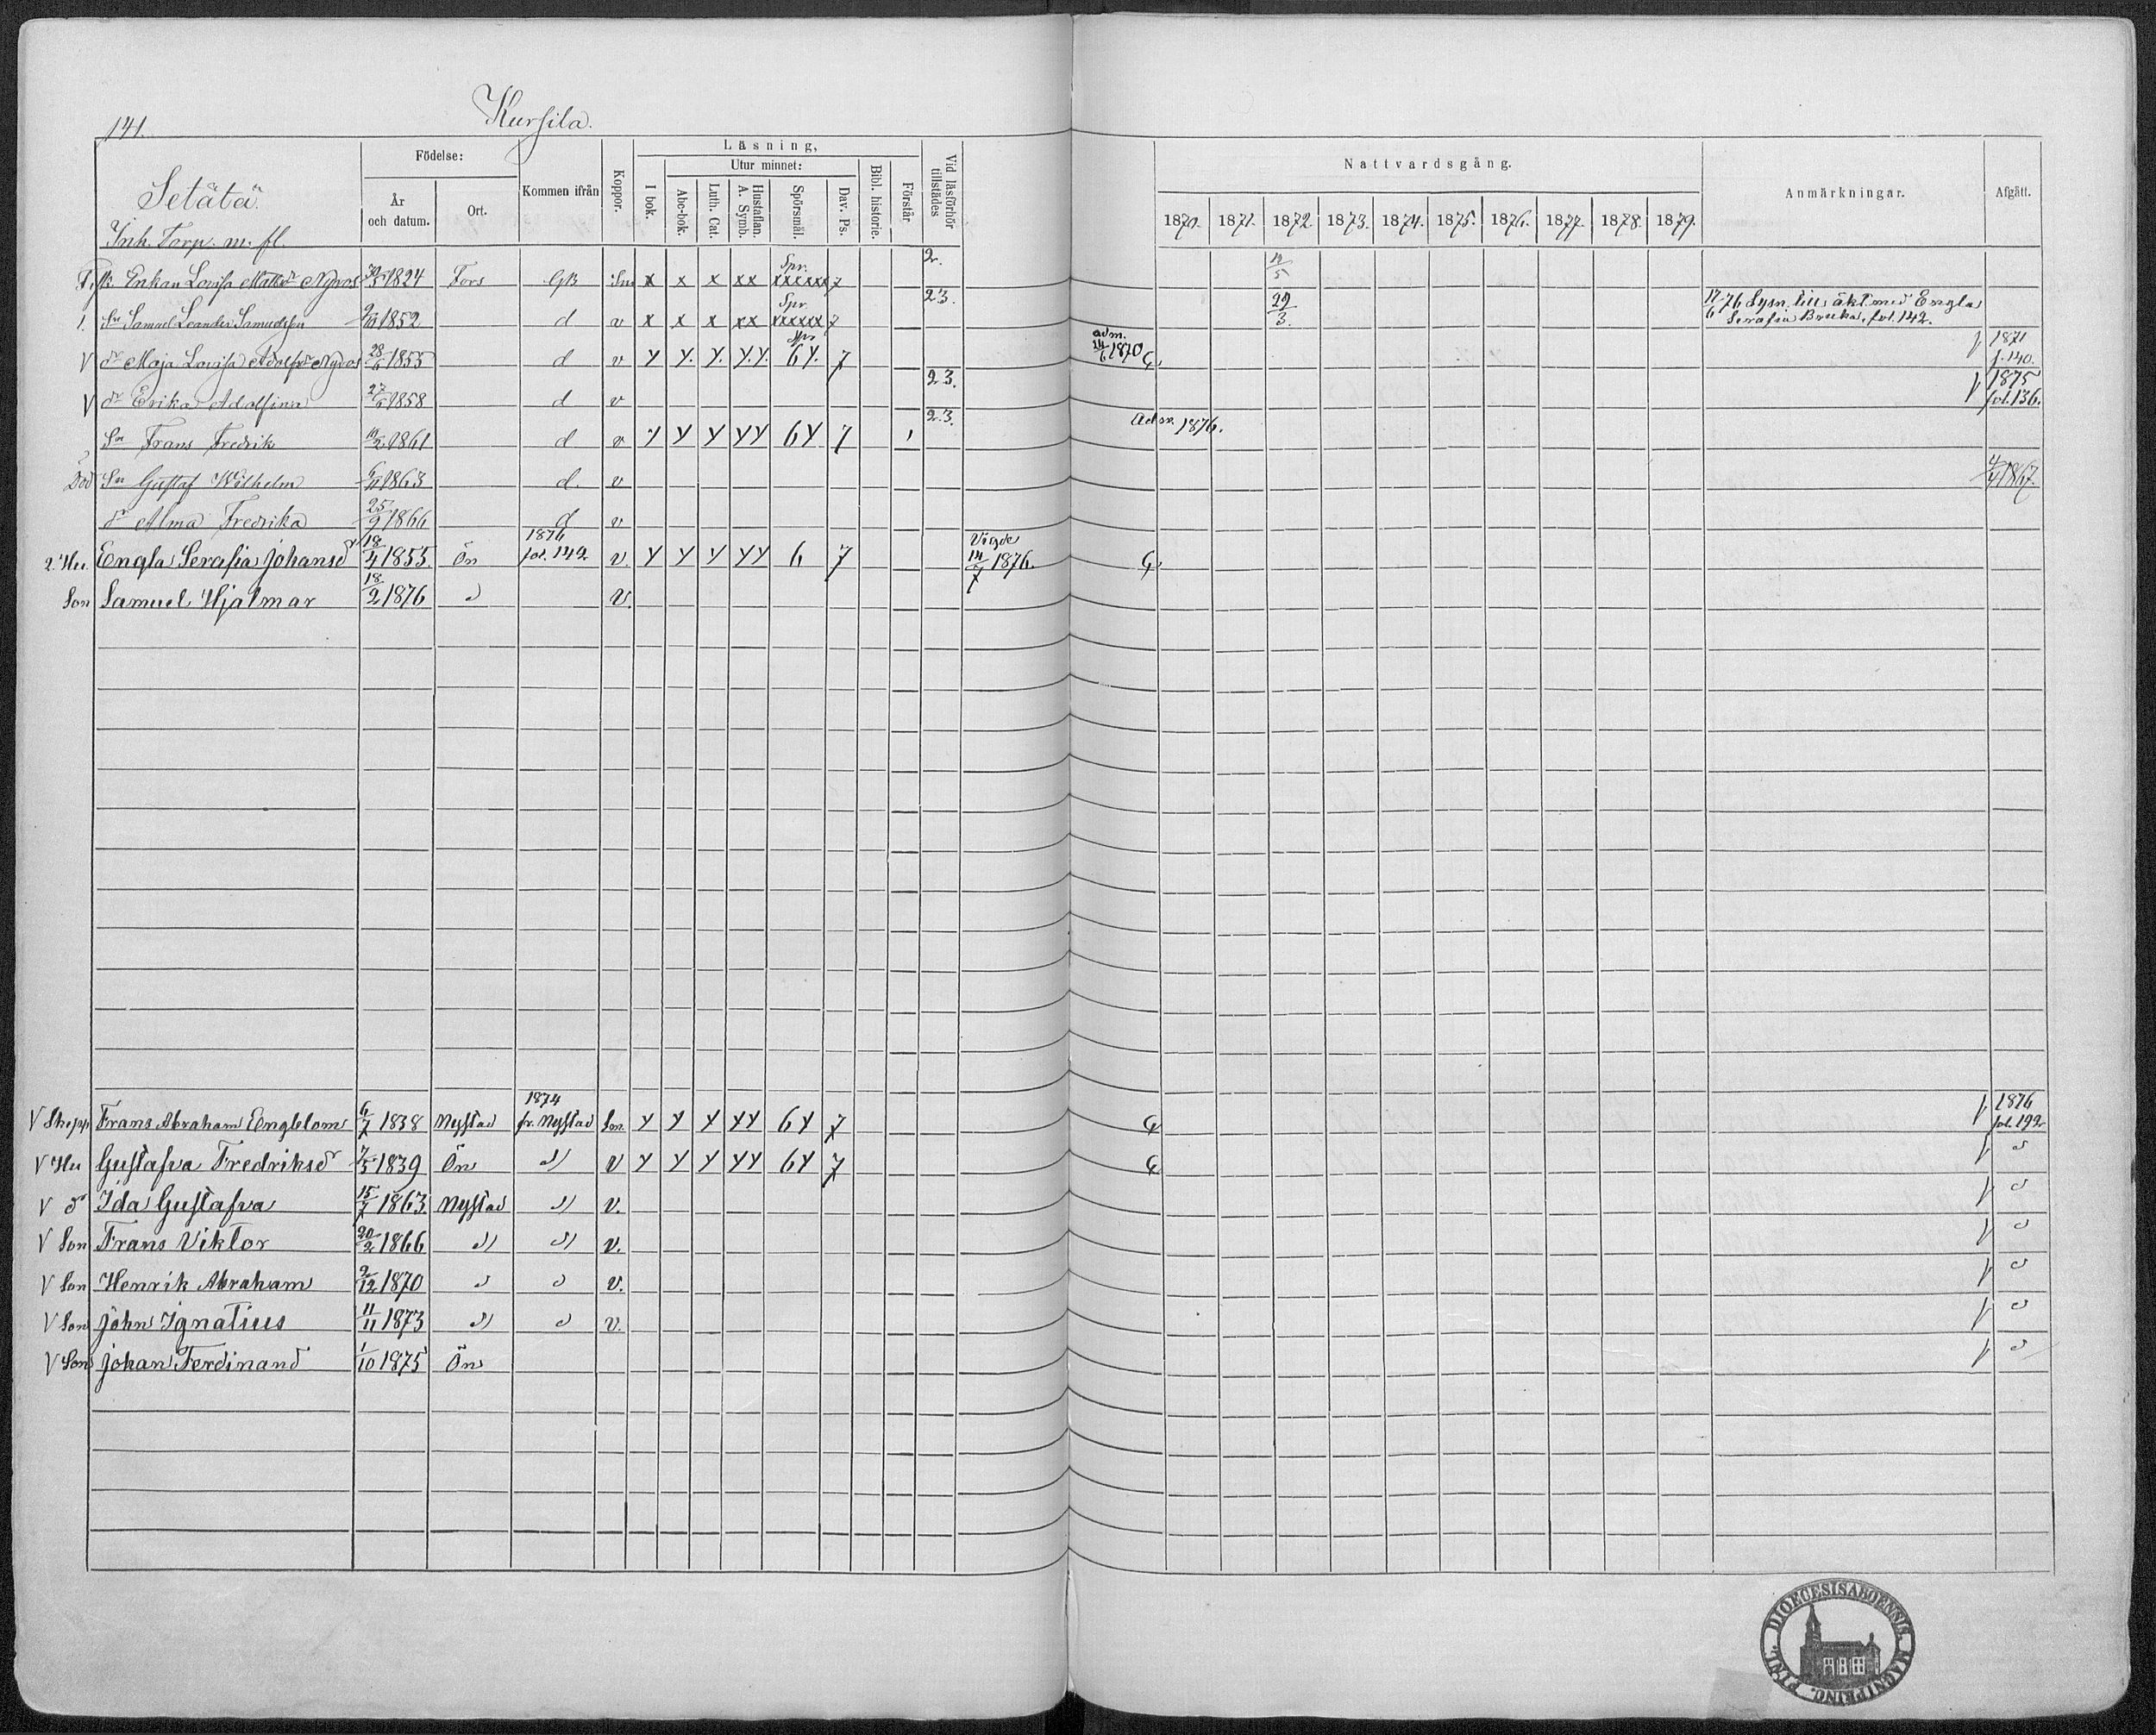 141.
Kursila.
Setätä.
Inh. Torp. m. fl.
Födelse:
År och datum.
Ort.
Kommen ifrån
Koppor.
Läsning,
I bok.
Utur minnet:
Abc-bok.
Luth. Cat.
Hustaflan. A. Symb.
Spörsmål.
Dav. Ps.
Bibl. historie.
Förstår
Vid läsförhör tillstädes
Nattvardsgång.
1870. 1871. 1872. 1873. 1874. 1875. 1876. 1877. 1878. 1879.
Anmärkningar.
Afgått.
Enkan Lovisa 1824 Fors GB x x x xx Spr. xxxxxx 7 2. 12/5
Sn Samuel Leander Samuelsson 1852 d v x x x xx Spr. xxxxx 7 23. 29/3. 17/6 76 Lysn. till äkt. med Engla Serafia fol. 142.
V dr Maja Lovisa 28/6 1855 d v y y. y. y.y. 6y. 7 adm. 1870 1871 f. 140.
V dr Erika Adolfina 27/6 1858 d v 23. 1875 fol. 136.
Sn Frans Fredrik 10/2 1861 d v y y y yy 6y 7 23. Adm. 1876.
Död Sn Gustaf Wilhelm 1863 d. v 1867.
dr Alma Fredrika 25/9 1866 d v
2. Hu. Engla Serafia Johansdr 18/4 1855. Ön 1876 fol. 142 v. y y y yy 6 7 Vigde 14/7 1876.
Son Samuel Hjalmar 18/2 1876 v.
V Skepp Frans Abraham Engblom 6/7 1838 Nystad 1874 fr. Nystad y y y yy 6y 7 1876 fol. 192
V Hu Gustafva Fredriksdr 7/5 1839 Ön v y y y yy 6y 7
V dr Ida Gustafva 15/7 1863 Nystad v.
V Son Frans Viktor 20/2 1866 v.
V Son Henrik Abraham 2/12 1870 v.
V Son John Ignatius 11/11 1873 v.
V Son Johan Ferdinand 1/10 1875 Ön